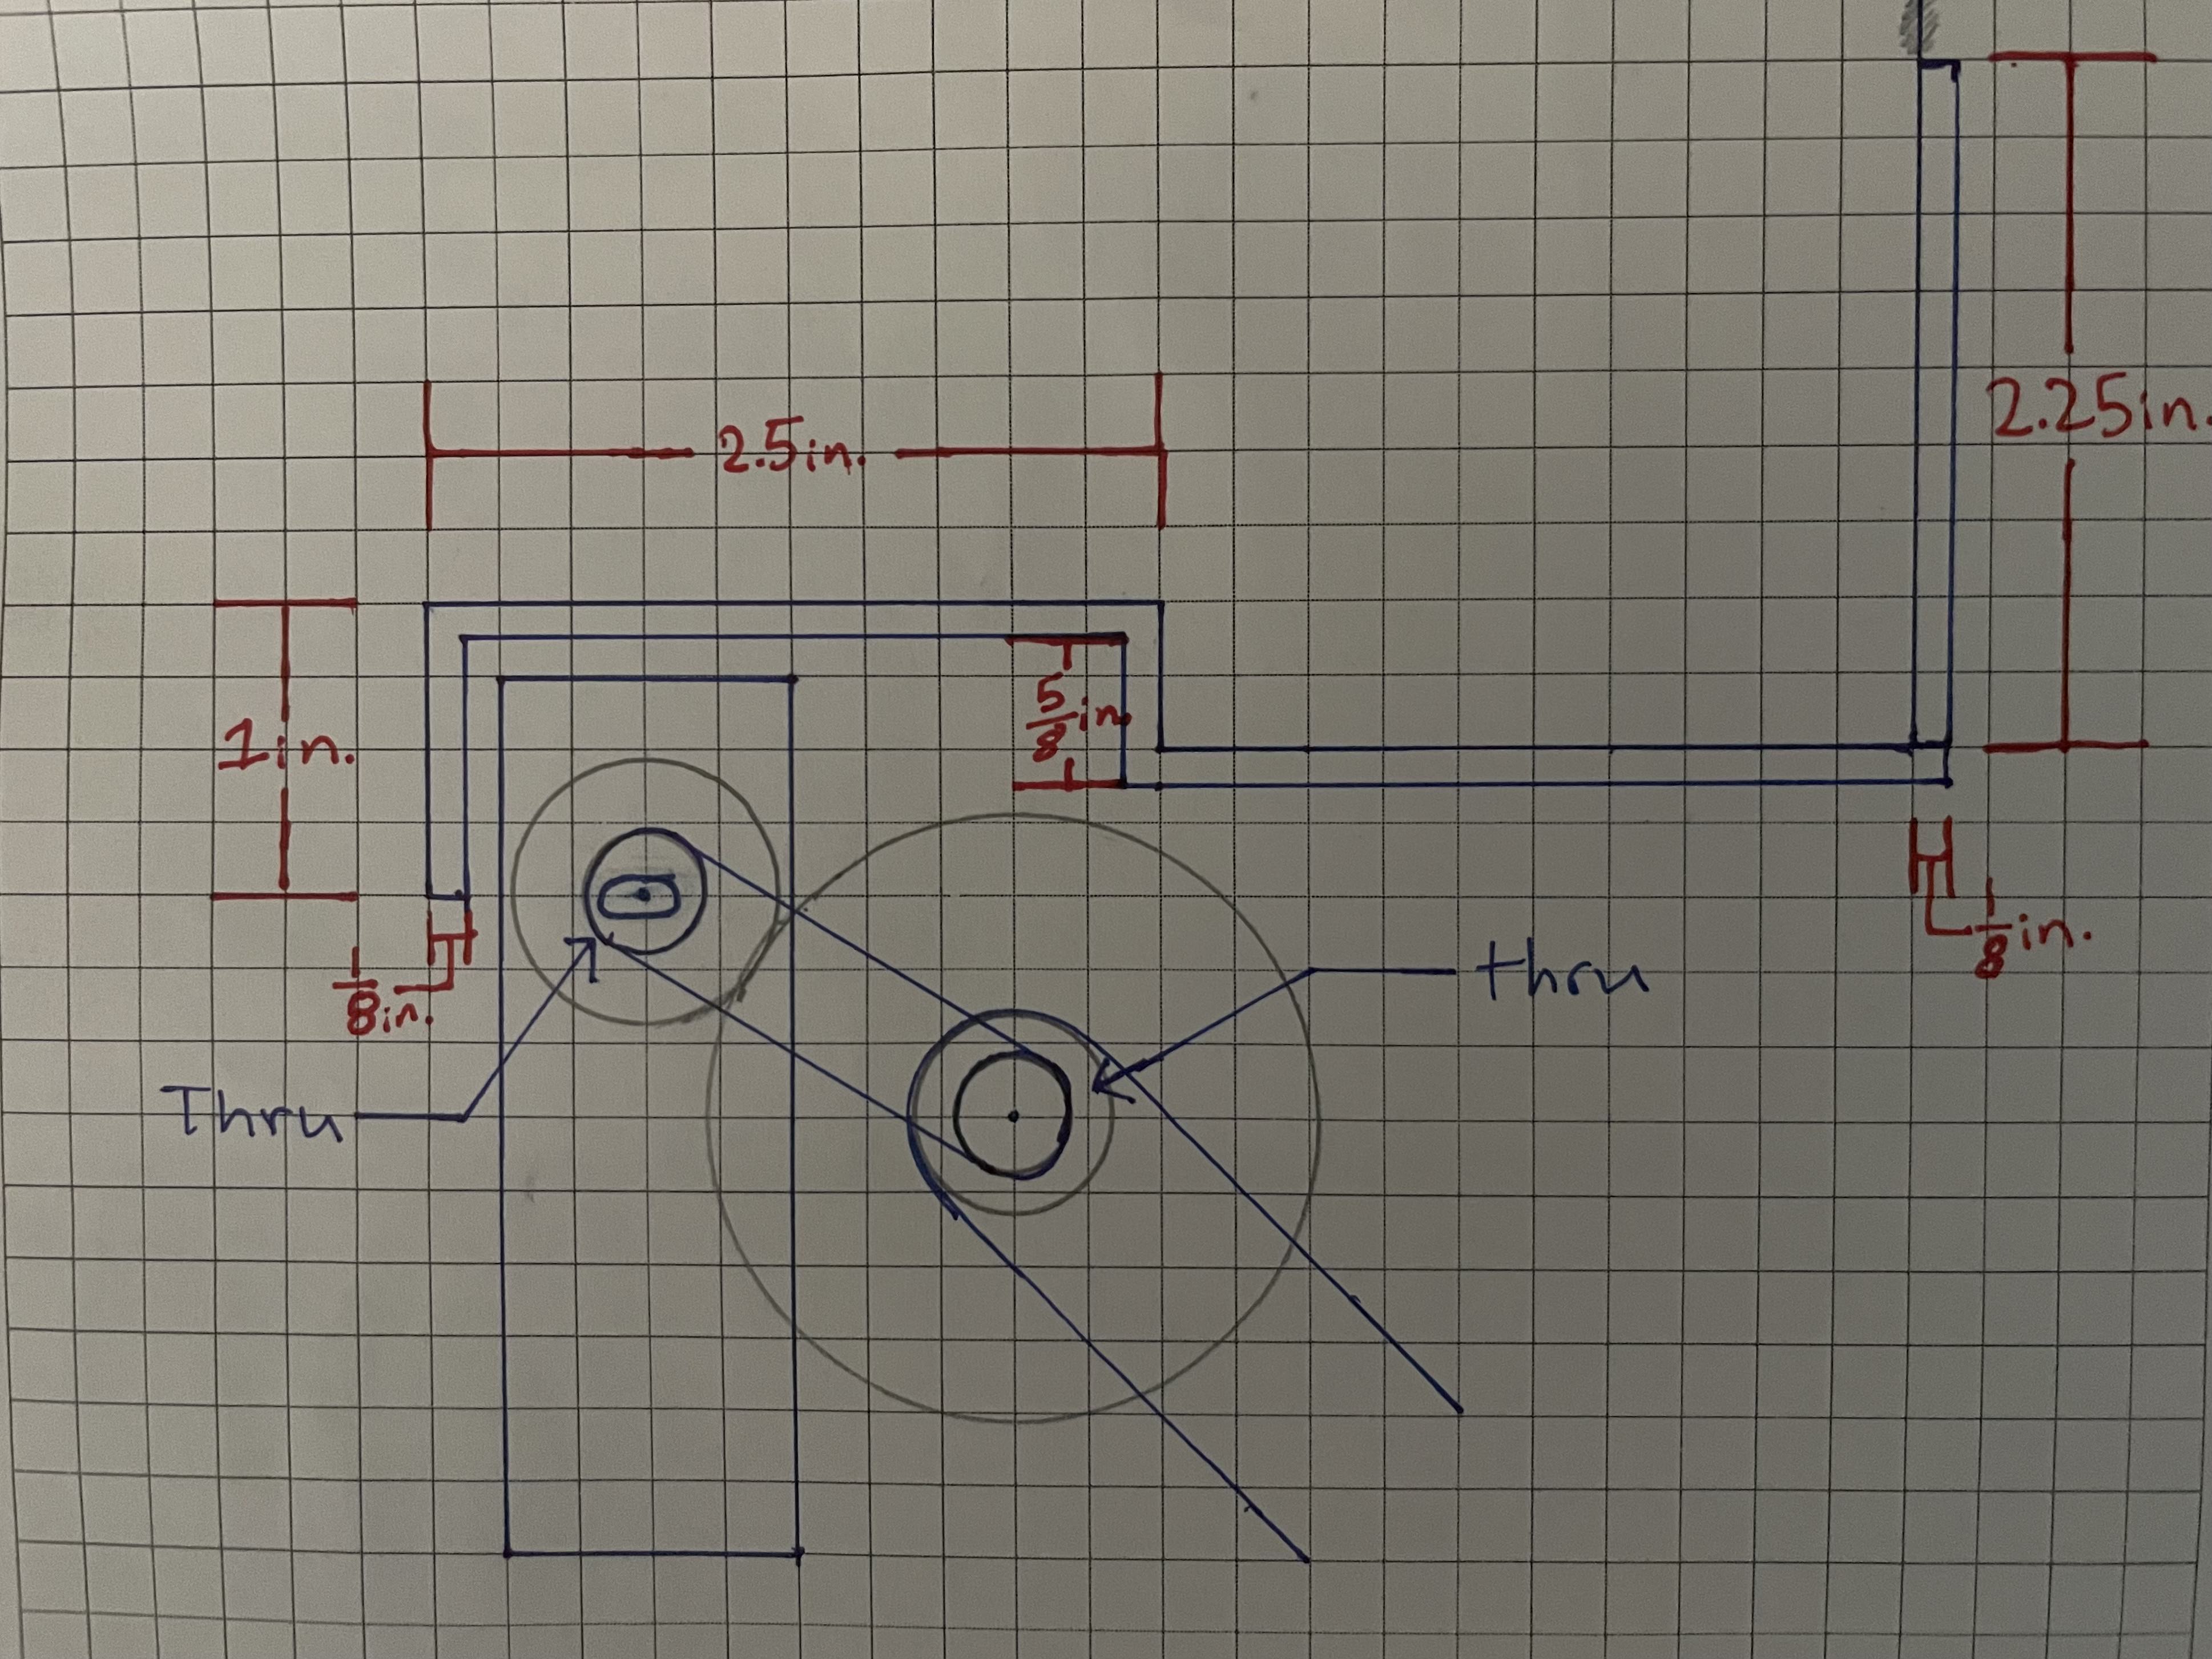 2.25in.
2.5in.
5/8 in.
1in.
1/8 in.
1/8 in.
thru
Thru